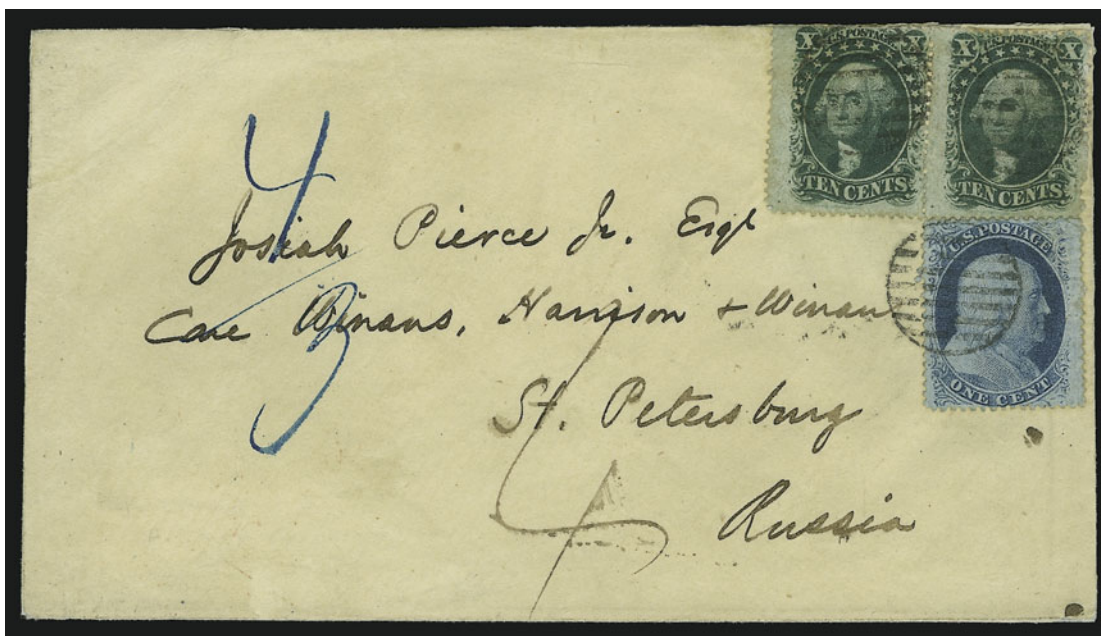 X U.S. POSTAGE X X U.S. POSTAGE X
TEN CENTS TEN CENTS
U.S. POSTAGE
ONE CENT
4
3
Josiah Pierce Jr. Esqr
Care Winans, Harrison + Winans
St. Petersburg
Russia